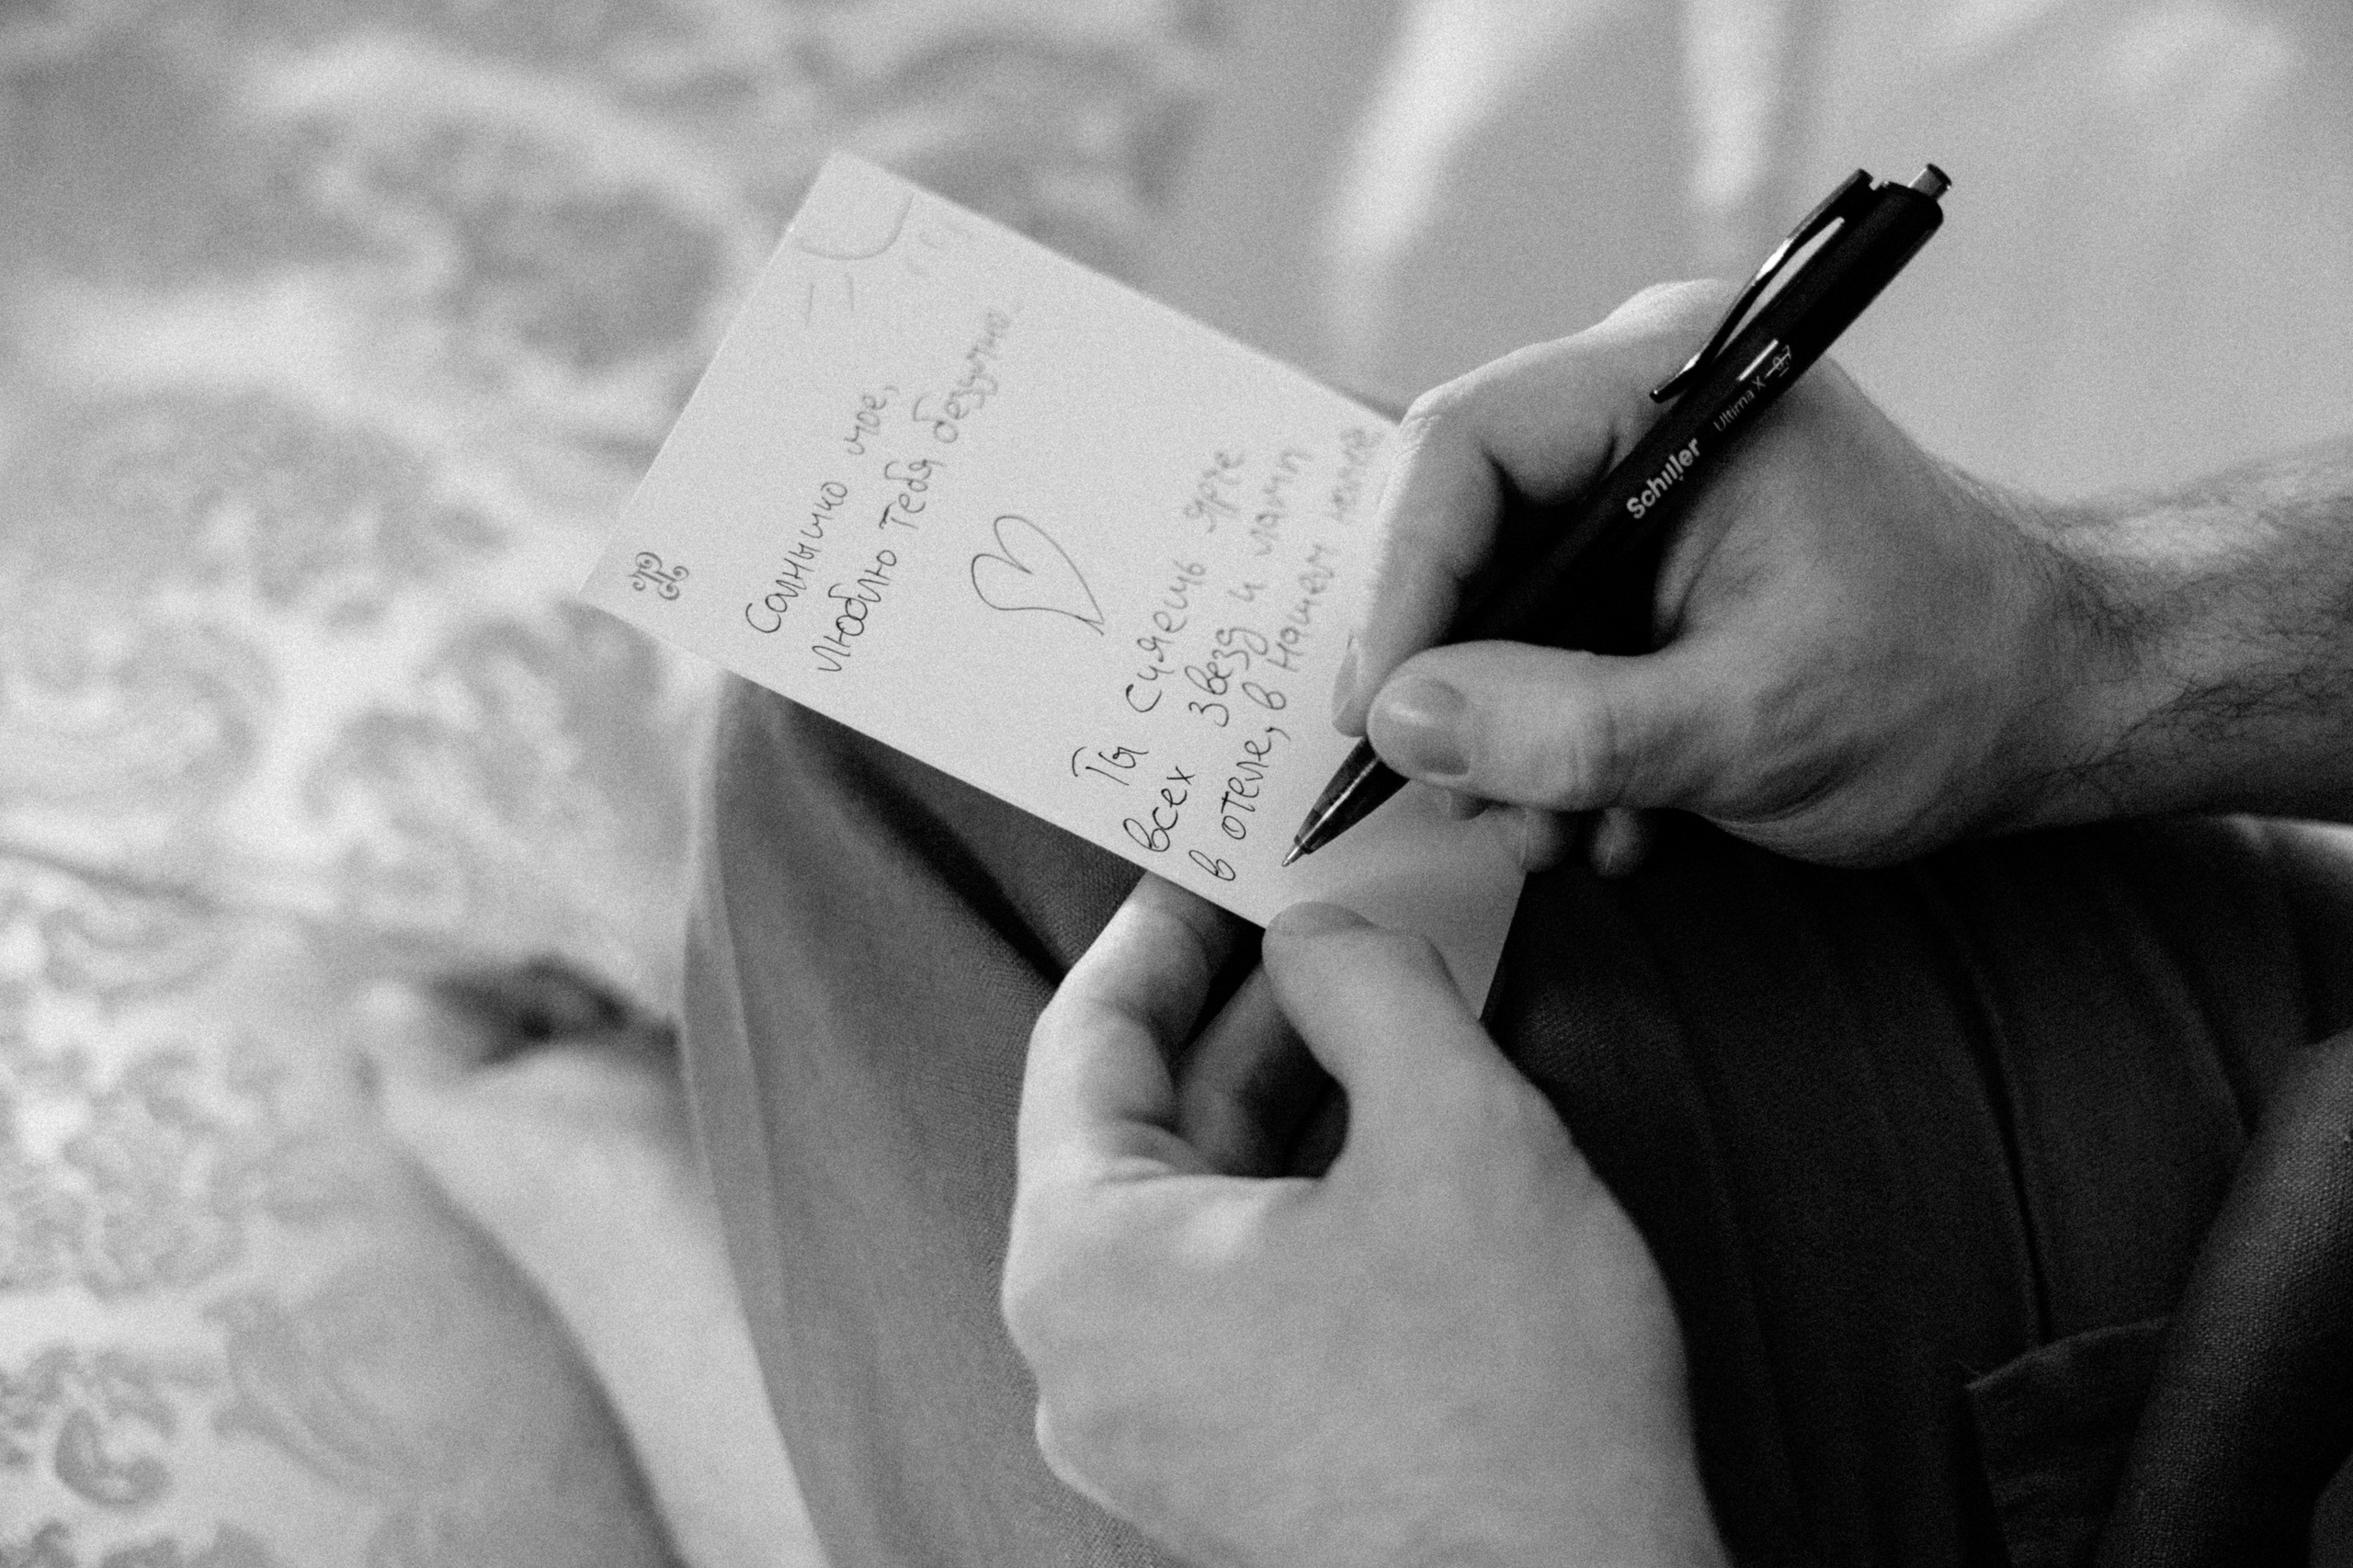 Солнышко мое,
люблю тебя безумно.
Ты сияешь ярче
всех звезд и ламп
в отеле, в нашем
Schiller Ultima X 0.7